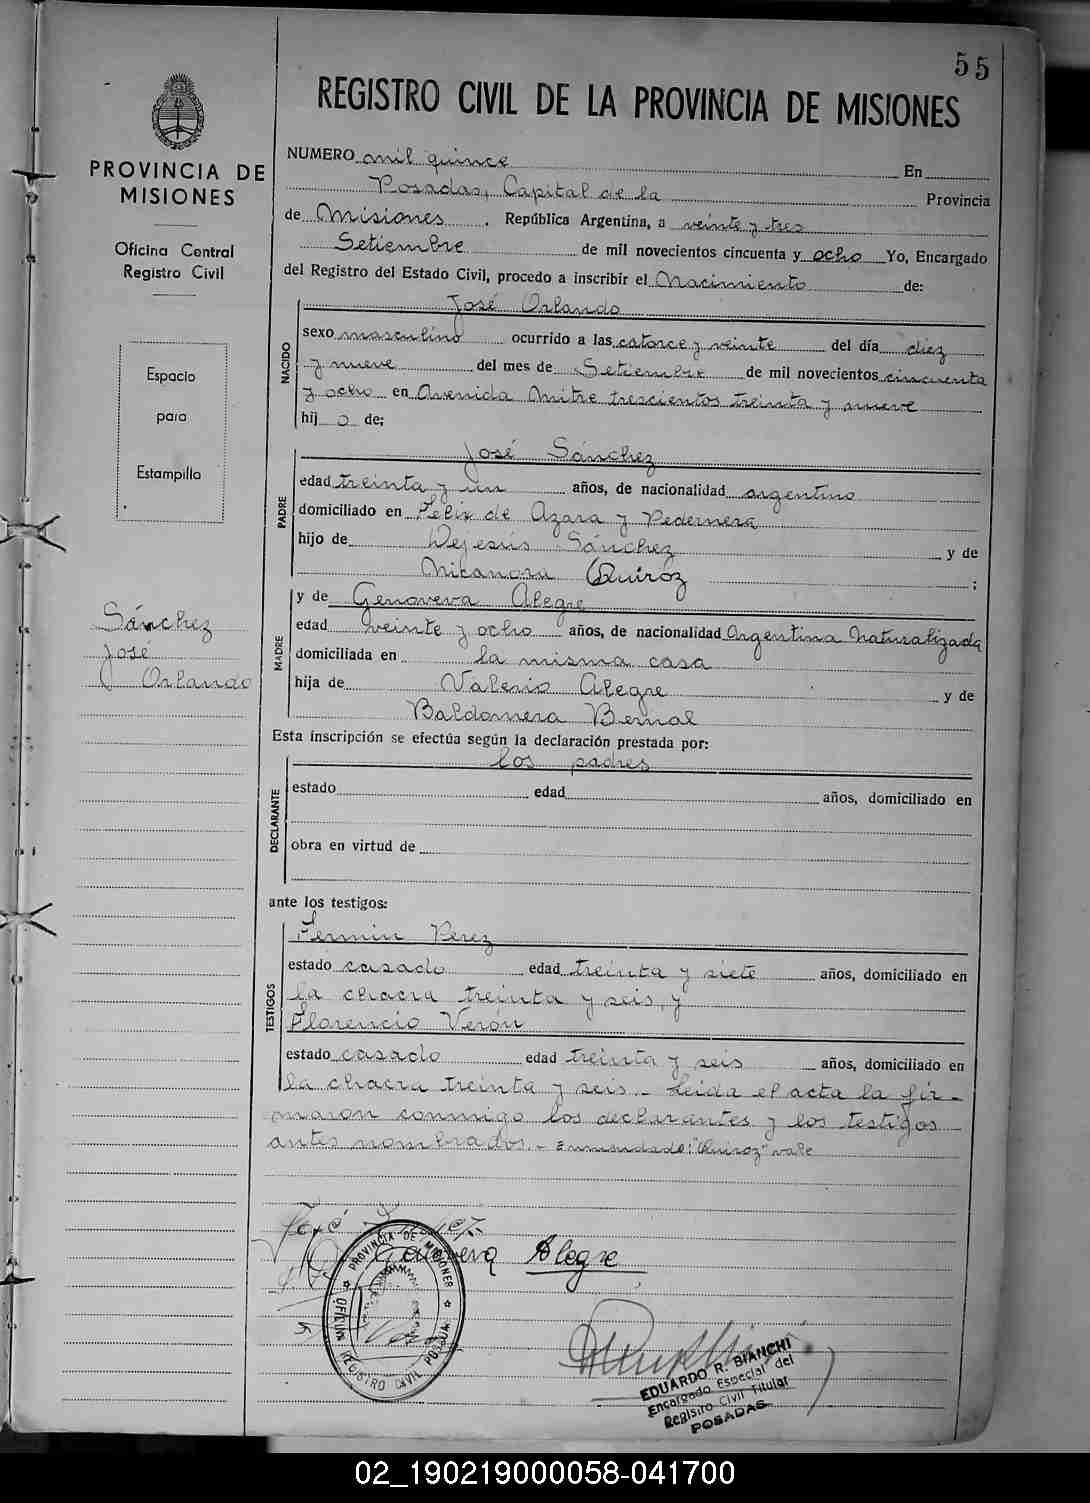 55
REGISTRO CIVIL DE LA PROVINCIA DE MISIONES
PROVINCIA DE
MISIONES
Oficina Central
Registro Civil
Espacio
para
Estampilla
Sánchez
José
Orlando
NUMERO mil quince En
Posadas, Capital de la Provincia
de Misiones. República Argentina, a veinte y tres
Setiembre de mil novecientos cincuenta y ocho Yo, Encargado
del Registro del Estado Civil, procedo a inscribir el Nacimiento de:
NACIDO
José Orlando
sexo masculino ocurrido a las catorce y veinte del día diez
y nueve del mes de Setiembre de mil novecientos cincuenta
y ocho en Avenida Mitre trescientos treinta y nueve
hij o de;
PADRE
José Sánchez
edad treinta y un años, de nacionalidad argentino
domiciliado en Felix de Azara y Pedernera
hijo de Dejesús Sánchez y de
Nicanora Quiroz ;
MADRE
y de Genoveva Alegre
edad veinte y ocho años, de nacionalidad Argentina Naturalizada
domiciliada en la misma casa
hija de Valerio Alegre y de
Baldomera Bernal
Esta inscripción se efectúa según la declaración prestada por:
DECLARANTE
los padres
estado edad años, domiciliado en
obra en virtud de
ante los testigos:
TESTIGOS
Fermin Perez
estado casado edad treinta y siete años, domiciliado en
la chacra treinta y seis, y
Florencio Verón
estado casado edad treinta y seis años, domiciliado en
la chacra treinta y seis.- Leida el acta la fir-
maron conmigo los declarantes y los testigos
antes nombrados.- Enmendado: "Quiroz" vale
José
Genoveva Alegre
PROVINCIA DE MISIONES
OFICINA REGISTRO CIVIL POSADAS
EDUARDO R. BIANCHI
Encargado Especial del
Registro Civil Titular
POSADAS
02_190219000058-041700